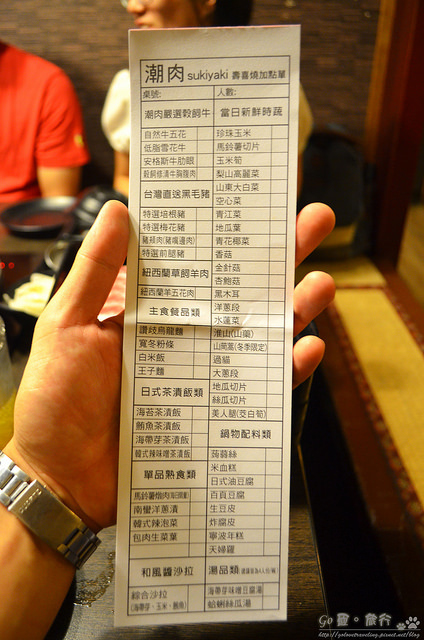 潮肉 sukiyaki 壽喜燒加點單
桌號:
人數:
潮肉嚴選穀飼牛
自然牛五花
低脂雪花牛
安格斯牛肋眼
台灣直送黑毛豬
特選培根豬
特選梅花豬
特選前腿豬
紐西蘭草飼羊肉
紐西蘭羊五花肉
主食餐品類
讚岐烏龍麵
寬冬粉條
白米飯
王子麵
日式茶漬飯類
海苔茶漬飯
鮪魚茶漬飯
海帶芽茶漬飯
韓式辣味噌茶漬飯
單品熟食類
南蠻洋蔥漬
韓式辣泡菜
包肉生菜葉
和風醬沙拉
綜合沙拉
(海帶芽、玉米、鮪魚)
當日新鮮時蔬
珍珠玉米
馬鈴薯切片
玉米筍
梨山高麗菜
山東大白菜
空心菜
青江菜
地瓜葉
青花椰菜
香菇
金針菇
杏鮑菇
黑木耳
洋蔥段
水蓮菜
淮山(山藥)
山茼蒿(冬季限定)
過貓
大蔥段
地瓜切片
絲瓜切片
美人腿(茭白筍)
鍋物配料類
蒟蒻絲
米血糕
日式油豆腐
百頁豆腐
生豆皮
炸腐皮
寧波年糕
天婦羅
湯品類
海帶芽味噌豆腐湯
蛤蜊絲瓜湯
Go 覓。旅行
http://gobontraveling.pixnet.net/blog